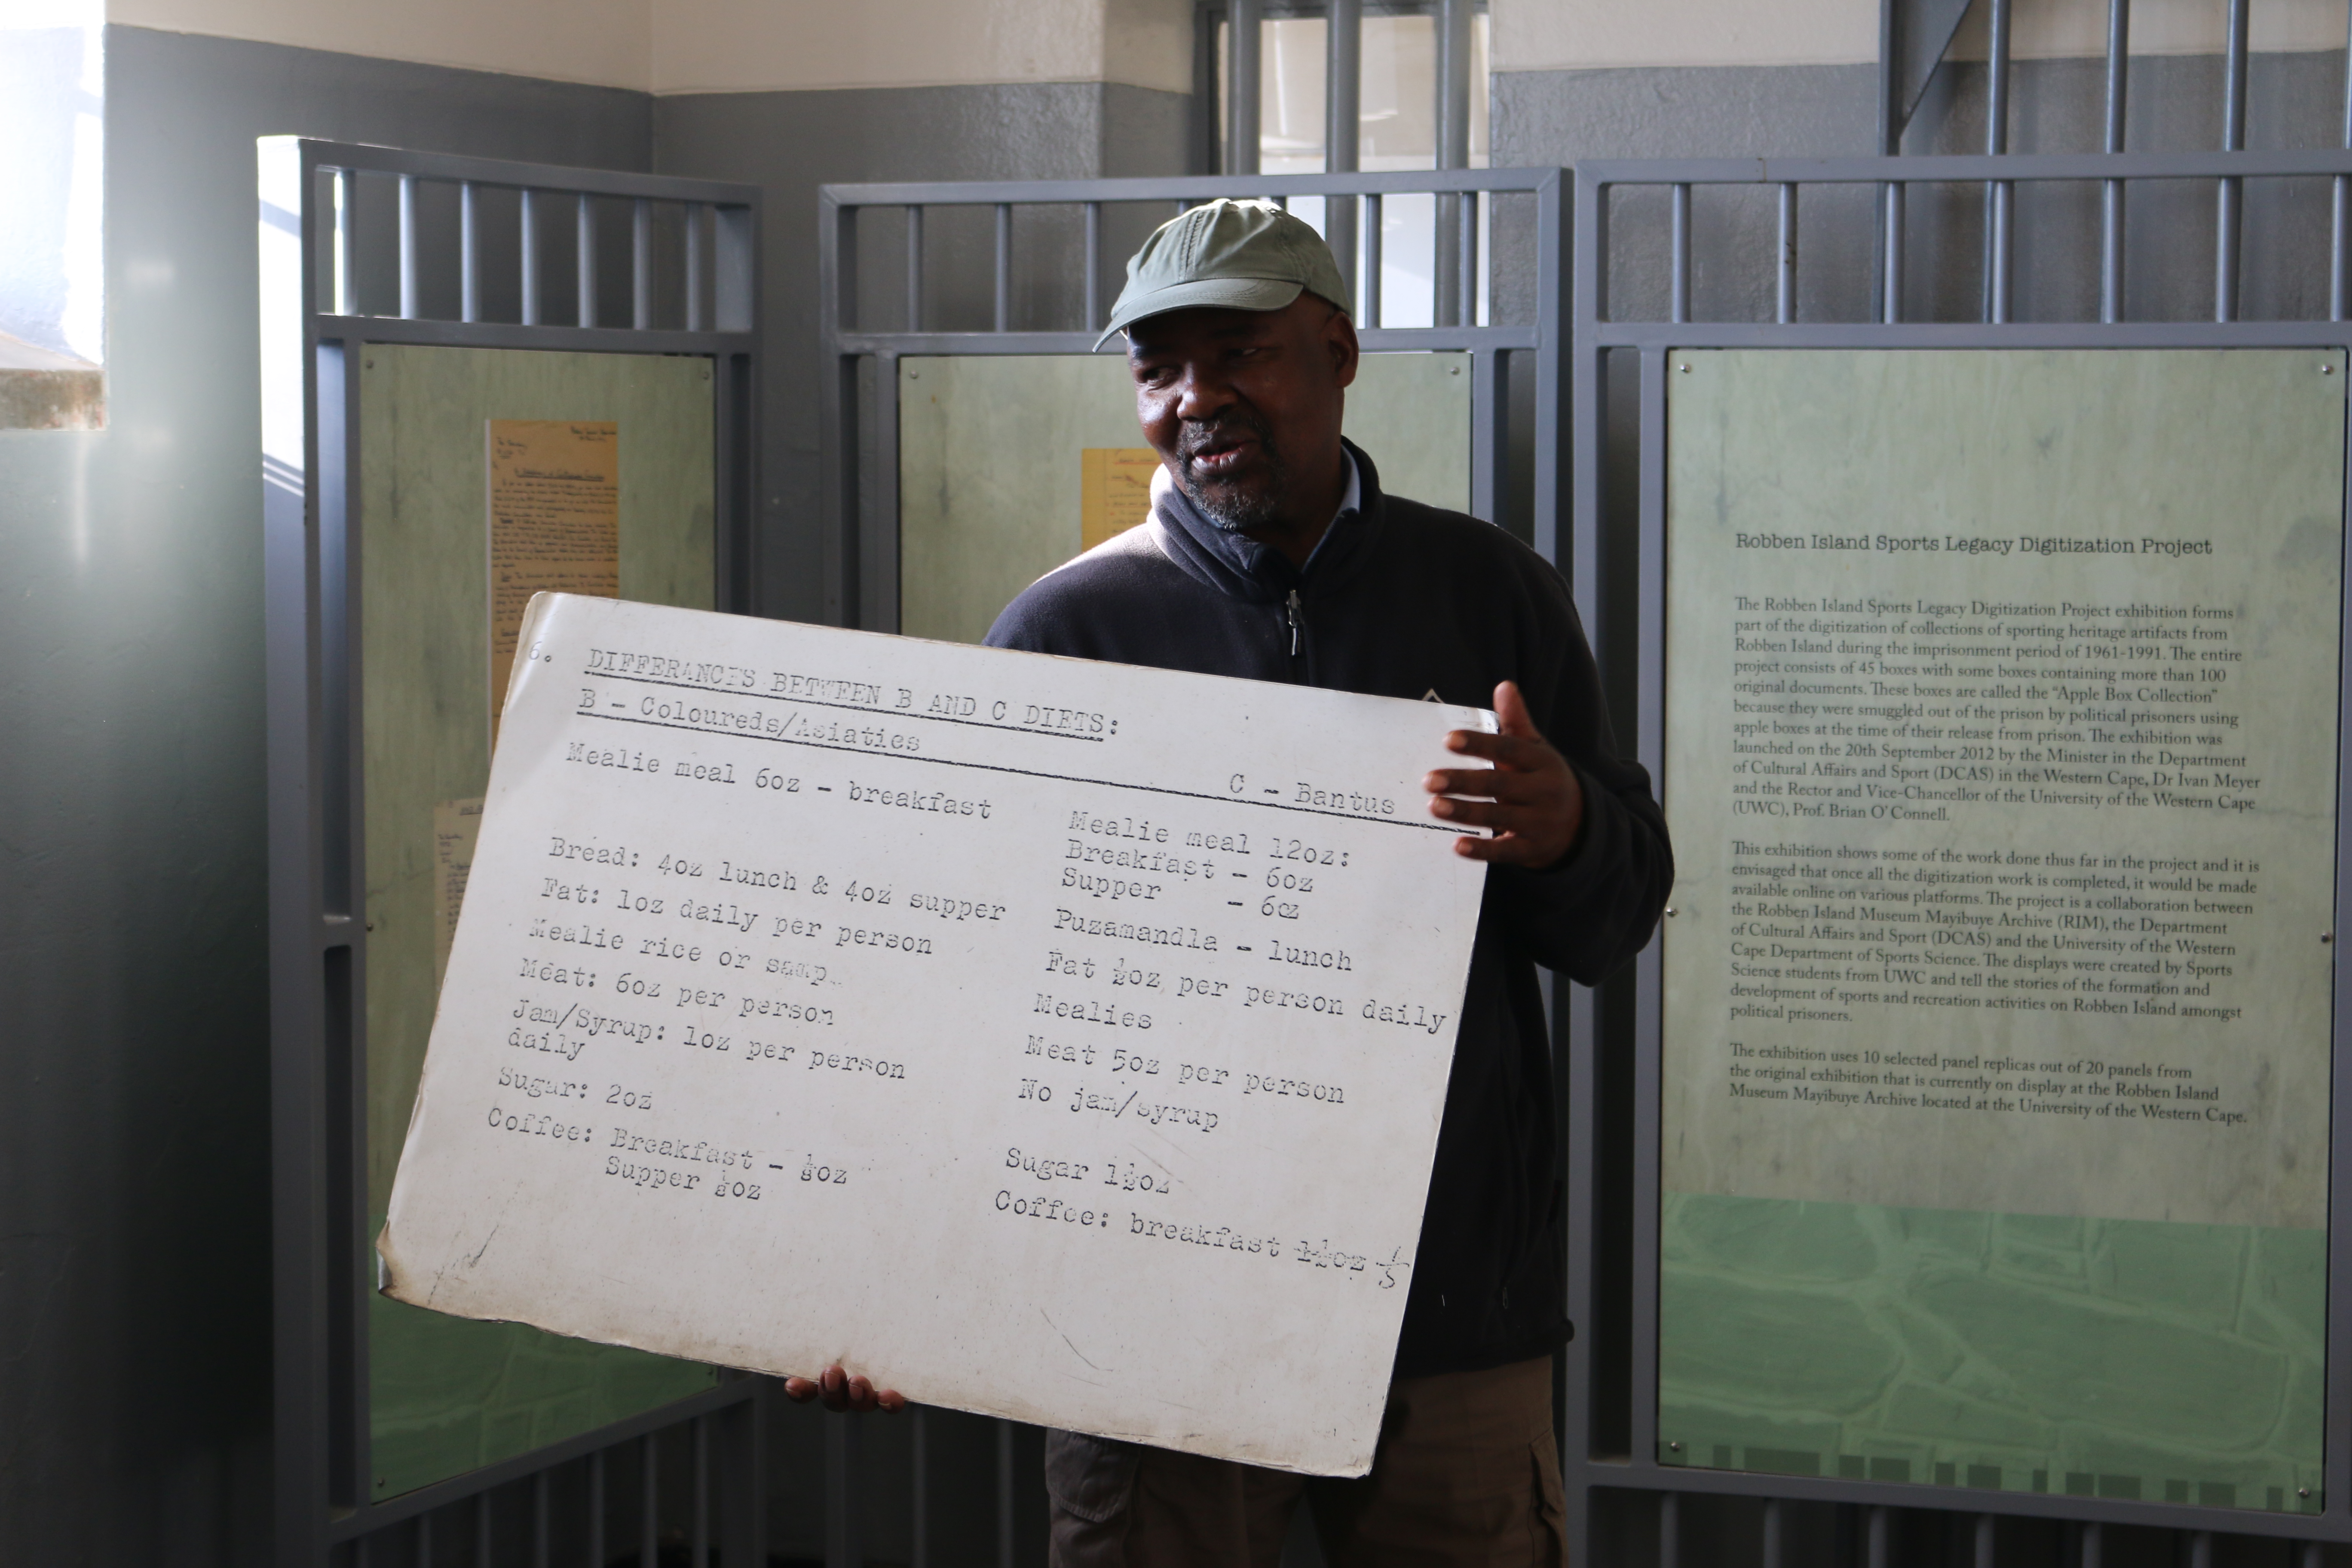 6. DIFFERANCES BETWEEN B AND C DIETS:
B - Coloureds/Asiatics
C - Bantus
Mealie meal 6oz - breakfast
Bread: 4oz lunch & 4oz supper
Fat: 1oz daily per person
Mealie rice or samp
Meat: 6oz per person
Jam/Syrup: 1oz per person
daily
Sugar: 2oz
Coffee: Breakfast - oz
Supper oz
Mealie meal 12oz:
Breakfast - 6oz
Supper - 6oz
Puzamandla - lunch
Fat ½oz per person daily
Mealies
Meat 5oz per person
No jam/syrup
Sugar 1½oz
Coffee: breakfast
Robben Island Sports Legacy Digitization Project
The Robben Island Sports Legacy Digitization Project exhibition forms
part of the digitization of collections of sporting heritage artifacts from
Robben Island during the imprisonment period of 1961-1991. The entire
project consists of 45 boxes with some boxes containing more than 100
original documents. These boxes are called the “Apple Box Collection”
because they were smuggled out of the prison by political prisoners using
apple boxes at the time of their release from prison. The exhibition was
launched on the 20th September 2012 by the Minister in the Department
of Cultural Affairs and Sport (DCAS) in the Western Cape, Dr Ivan Meyer
and the Rector and Vice-Chancellor of the University of the Western Cape
(UWC), Prof. Brian O’Connell.
This exhibition shows some of the work done thus far in the project and it is
envisaged that once all the digitization work is completed, it would be made
available online on various platforms. The project is a collaboration between
the Robben Island Museum Mayibuye Archive (RIM), the Department
of Cultural Affairs and Sport (DCAS) and the University of the Western
Cape Department of Sports Science. The displays were created by Sports
Science students from UWC and tell the stories of the formation and
development of sports and recreation activities on Robben Island amongst
political prisoners.
The exhibition uses 10 selected panel replicas out of 20 panels from
the original exhibition that is currently on display at the Robben Island
Museum Mayibuye Archive located at the University of the Western Cape.